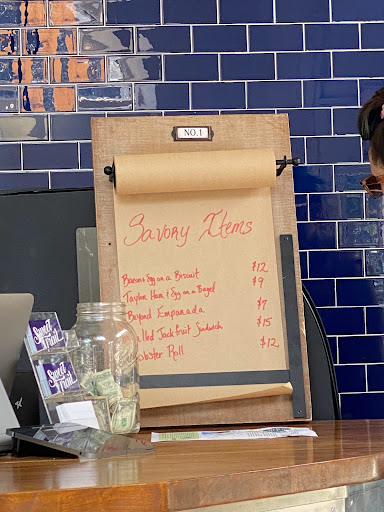 NO.1
Savory Items
Bacon & Egg on a Biscuit $12
Taylor Ham & Egg on a Bagel $9
Beyond Empanada $7
lled Jackfruit Sandwich $15
obster Roll $12
Sweet
Trial
Sweet
Trial